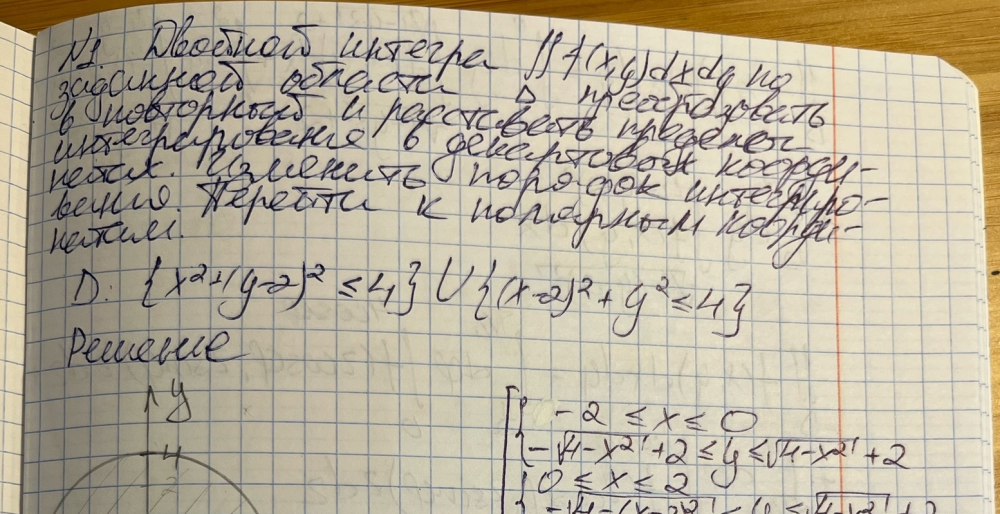 №1. Двойной интегра ∬ f(x,y)dxdy по
заданной области D преобразовать
в повторный и расставить пределы
интегрирования в декартовых коорди-
натах. Изменить порядок интегриро-
вания. Перейти к полярным коорди-
натам.
D: {x²+(y-2)² ≤ 4} ∪ {(x-2)² + y² ≤ 4}
Решение
y
4
-2 ≤ x ≤ 0
-√4-x² +2 ≤ y ≤ √4-x² +2
0 ≤ x ≤ 2
-√4-(x-2)² ≤ y ≤ √4-x² +2